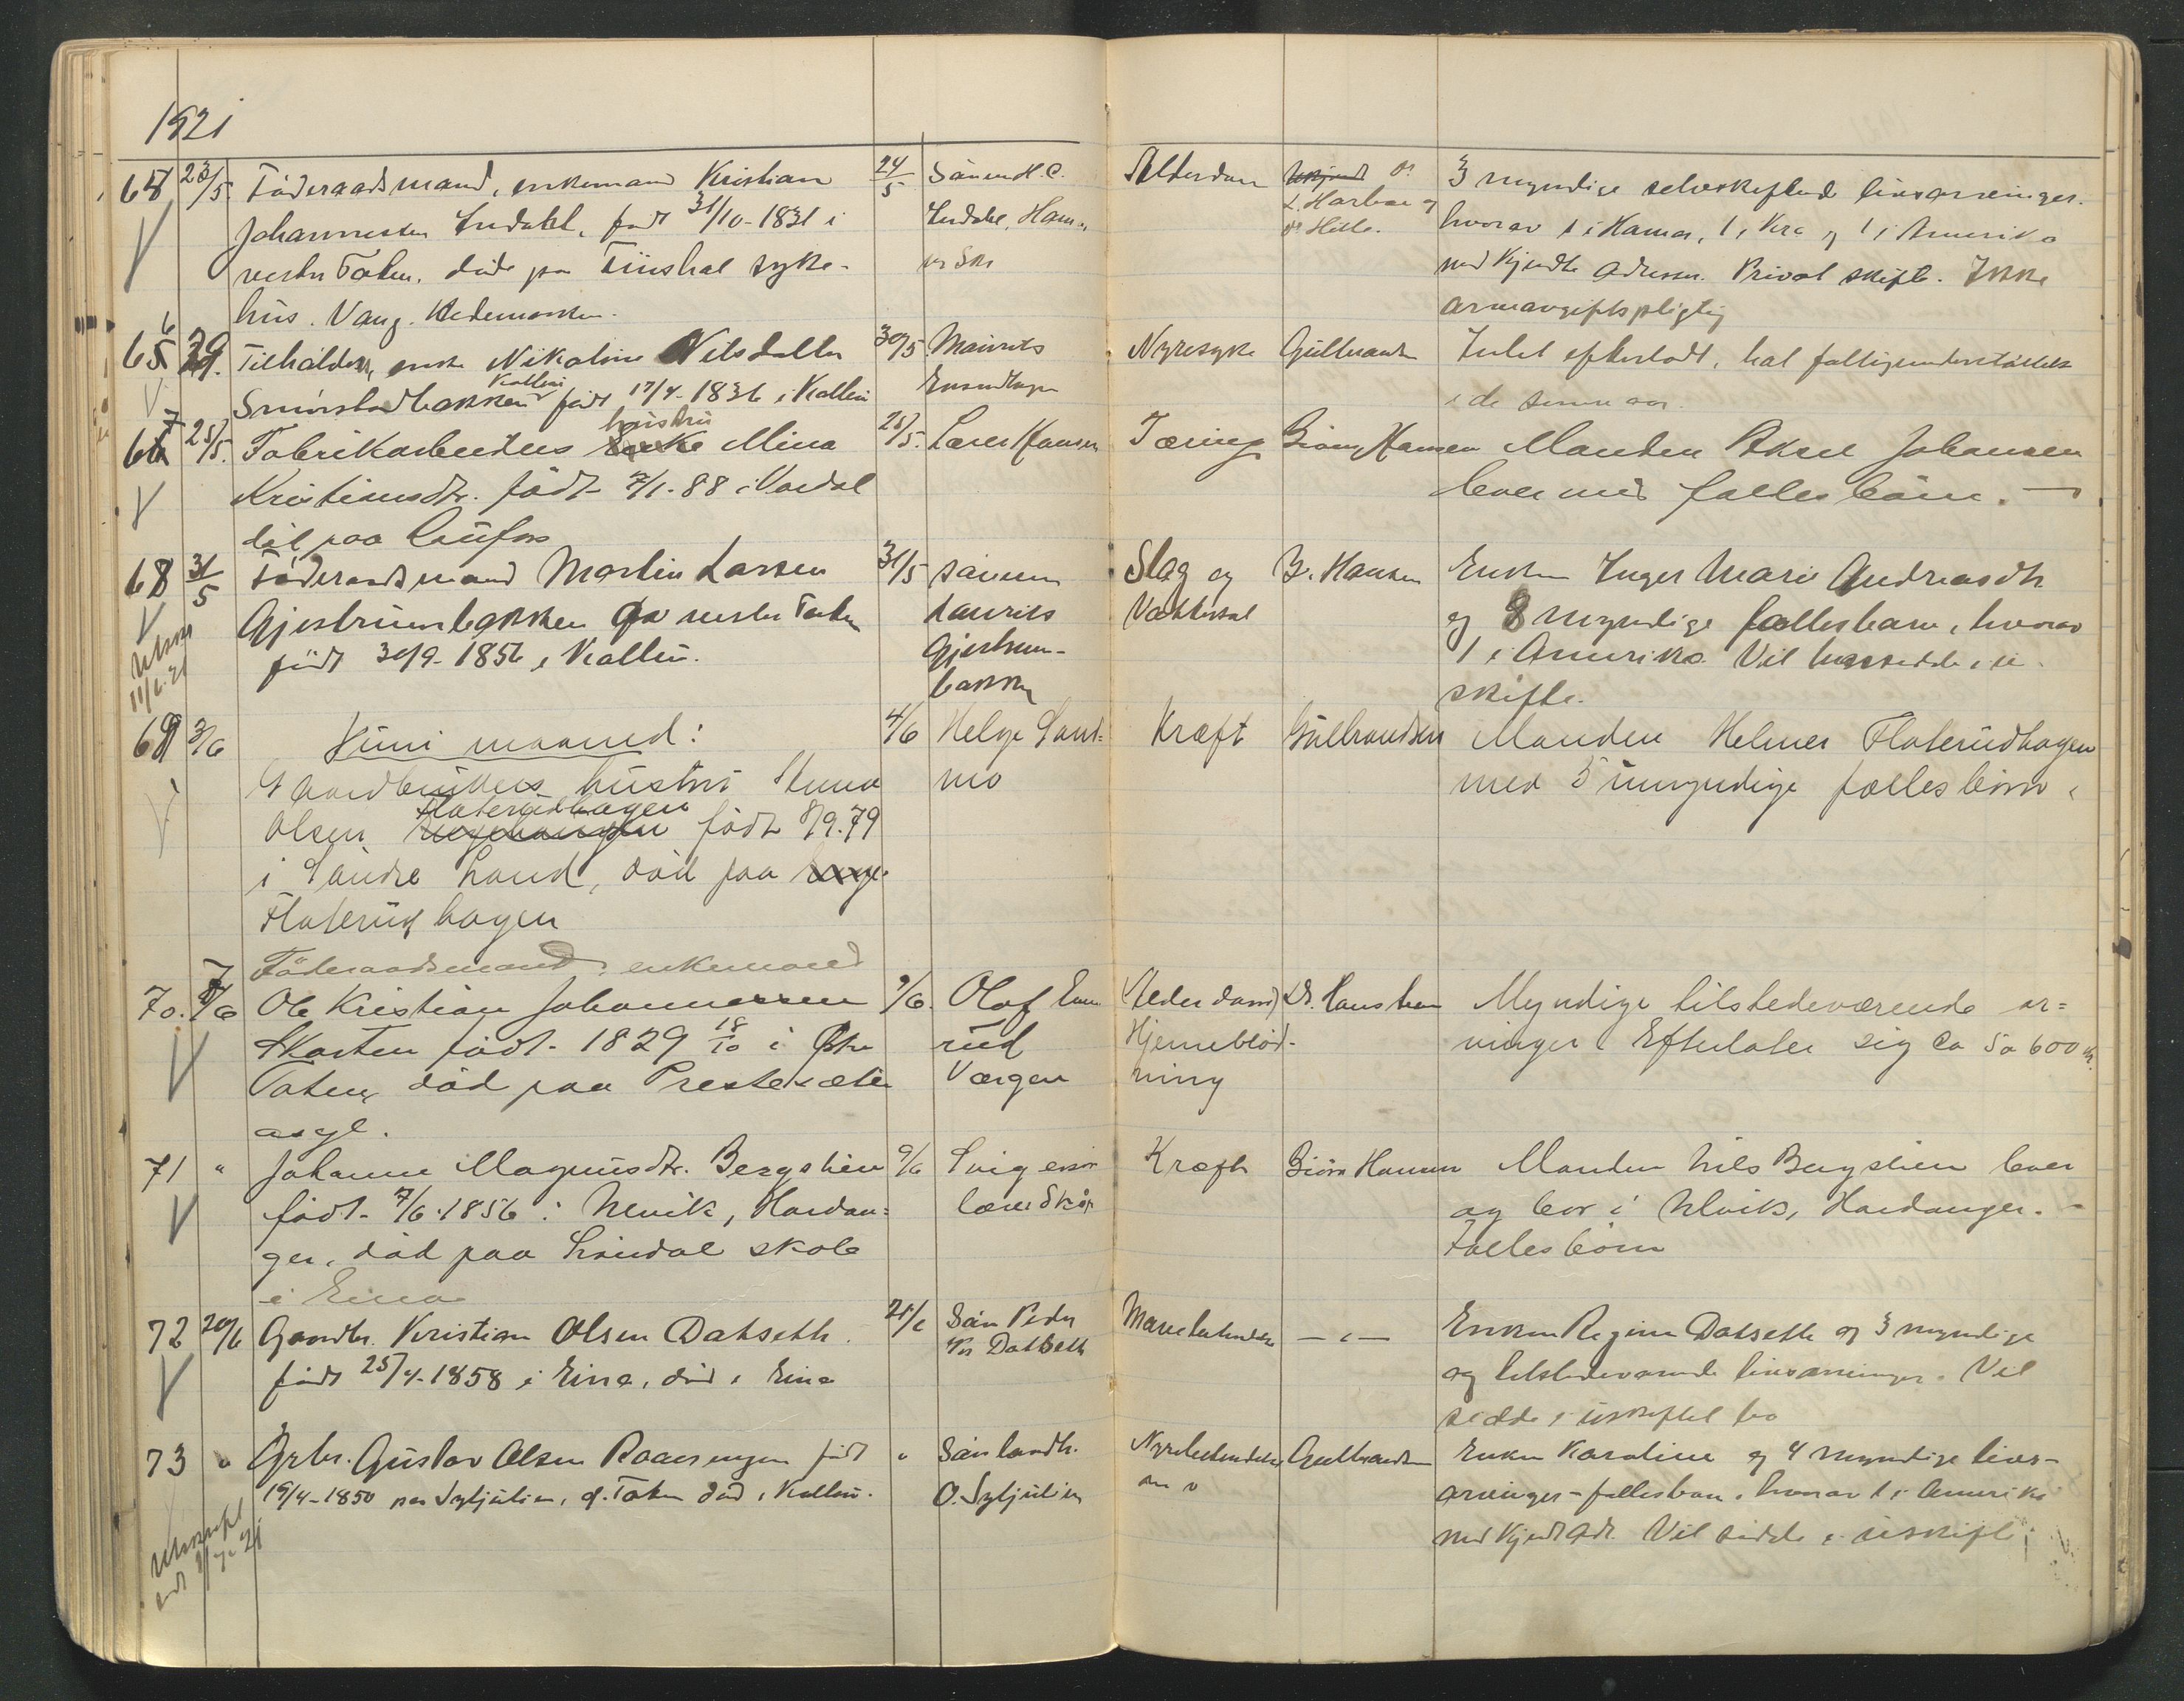 1921
65 23/5. Föderaadsmand, enkemand Kristian
Johannessen Indahl, födt 31/10-1831 i
vestre Toten, döde paa syke-
hus. Vang. Hedemarken.
24/5 Sönnen H. C.
Indahl, Ham-
Alderdom
L. Harboe og
dr Hille.
3 myndige livsarvinger.
hvorav 1 i Hamar, 1 i Kra og 1 i Amerika
med kjendte adresser. Privat skifte. Ikke
arveavgiftspligtig
66 29. enke Nikoline Nilsdatter
Smörstadbakken Kolbu födt 17/4-1836 i Kolbu
30/5 Maurits
Nyresyke Gulbrandsen
Intet efterladt, hat fattigunderstöttelse
i de senere aar.
67 25/5. Fabrikarbeiders hustru Enke Mina
Kristiansdtr. födt 7/1-88 i Vardal
död paa Raufoss
28/5. Lærer Hansen
Tæring Björn Hansen
Manden Aksel Johansen
lever med fælles börn.
68 31/5 Föderaadsmand Martin Larsen
Gjestrumbakken av vestre Toten
födt 30/9-1856 i Kolbu.
Utskr
11/6-21
31/5 sönnen
Laurits
Gjestrum-
bakken
Slag og B. Hansen
Enken Inger Marie Andreasdtr
og 8 myndige fællesbarn, hvorav
1 i Amerika. Vil hensidde i u-
skifte.
69 3/6 Juni maaned:
Gaardbrukers hustru Anna
Olsen Flaterudhagen födt 8/9.79
i Söndre Land, död paa
Flaterudhagen
4/6 Helge Sand-
mo
Kræft Gulbrandsen
Manden Helmer Flaterudhagen
med 5 umyndige fælles börn.
Föderaadsmand, enkemand
70. 7/6 Ole Kristian Johannessen
Skarten födt 1829 18/10 i Östre
Toten, död paa Prestesæter
asyl.
9/6. Olaf
rud
Værgen
(Alderdom) Dr. Haustven
Hjerneblöd-
ning
Myndige tilstedeværende ar-
vinger. Efterlater sig ca 5 a 600 kr.
71 " Johanne Magnusdtr. Bergslien
födt 7/6-1856 i Ulvik, Hardan-
ger, död paa Söndal skole
i Eina
9/6
lærer
Kræft Björn Hansen
Manden Nils Bergslien lever
og bor i Ulvik, Hardanger.
Fælles börn
72 20/6 Gaardbr. Kristian Olsen Datseth.
födt 25/4-1858 i Eina, död i Eina
21/6 Sön Peder
Kr Datseth
— " —
Enken Regine Datseth og 3 myndige
og tilstedeværende livsarvinger. Vil
sidde i uskiftet bo
73 " Grbr. Gustav Olsen födt
19/4-1850 paa Syljulien, v. Toten död i Kolbu.
Utskrift
" Sön landh.
O. Syljulien
Nyrebetændelse Gulbrandsen
m v
Enken Karoline og 4 myndige livs-
arvinger-fællesbarn, hvorav 1 i Amerika
med kjendt adr. Vil sidde i uskifte.